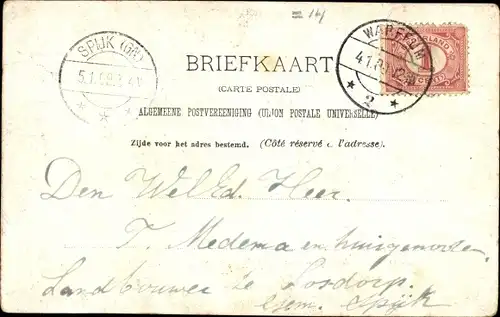 14
SPIJK (GR)
5.1.08.
WARFFUM
4.1.08.
2
NEDERLAND
1
CENT
BRIEFKAART
(CARTE POSTALE)
ALGEMEENE POSTVEREENIGING (UNION POSTALE UNIVERSELLE)
Zijde voor het adres bestemd. (Côté réservé à l'adresse).
Den WelEd. Heer.
T. Medema en huisgenooten.
Landbouwer te Losdorp.
gem. Spijk